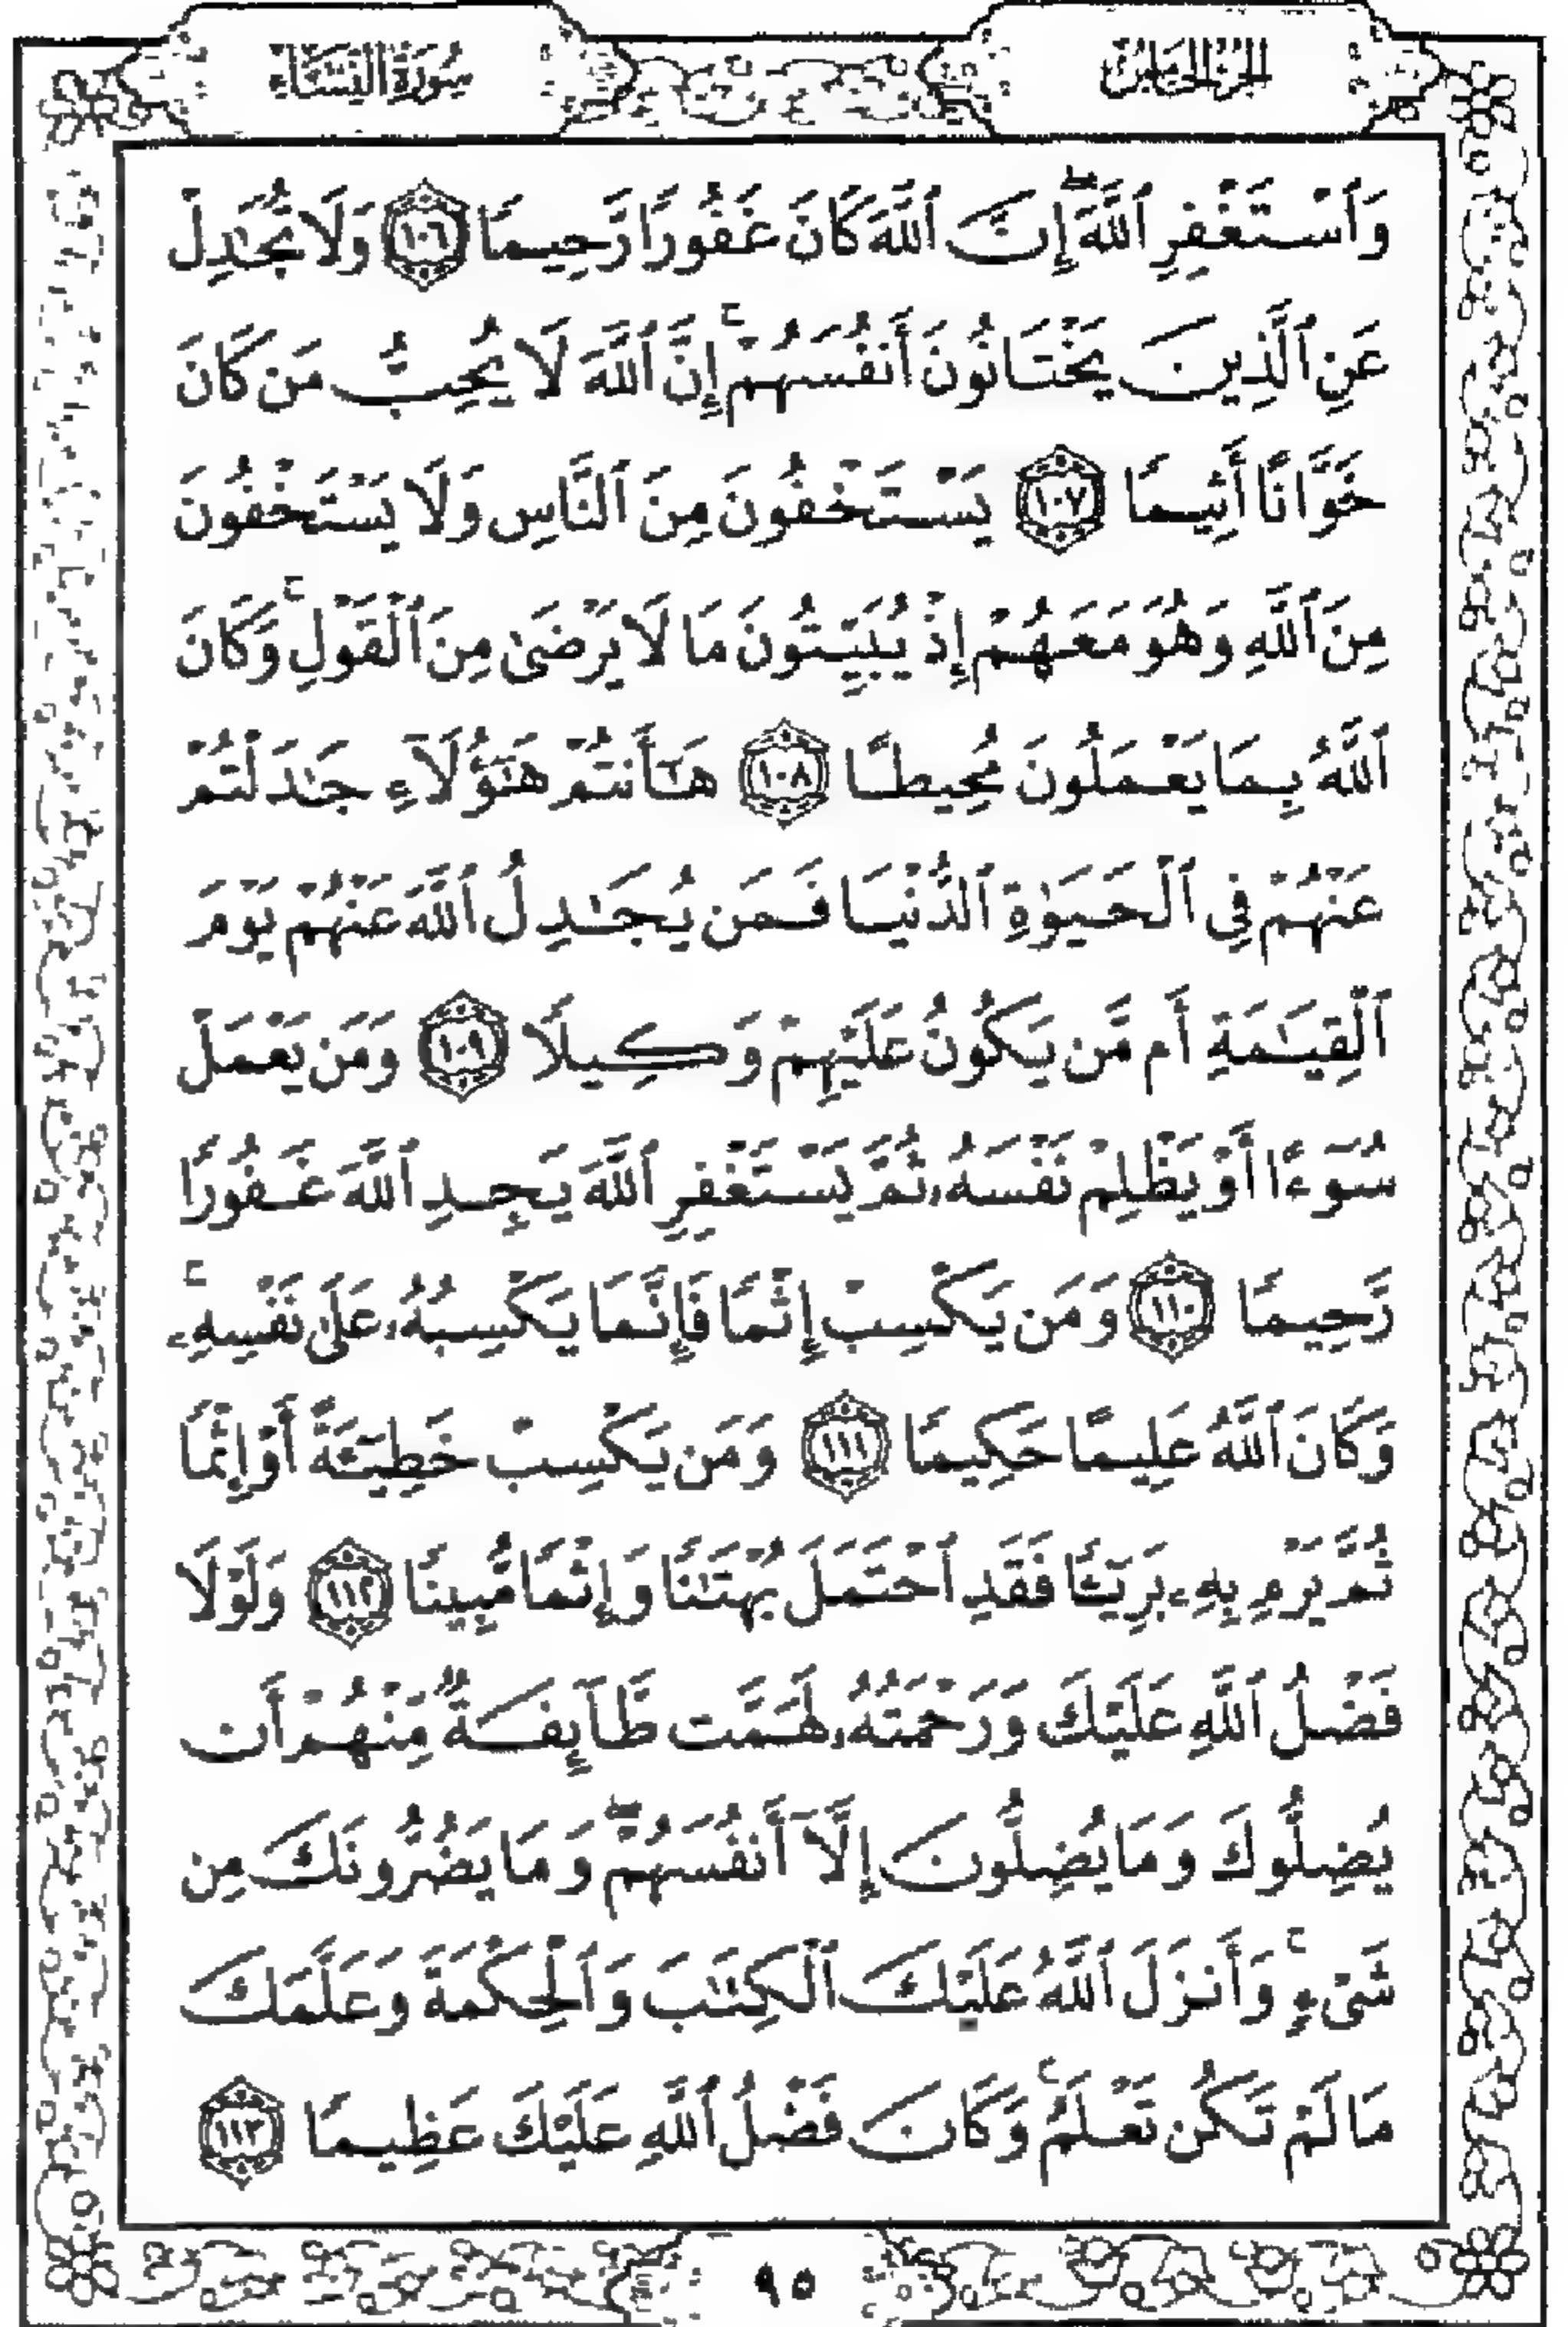 الجزء الخامس
سورة النساء
وَٱسۡتَغۡفِرِ ٱللَّهَۖ إِنَّ ٱللَّهَ كَانَ غَفُورٗا رَّحِيمٗا ١٠٦ وَلَا تُجَٰدِلۡ
عَنِ ٱلَّذِينَ يَخۡتَانُونَ أَنفُسَهُمۡۚ إِنَّ ٱللَّهَ لَا يُحِبُّ مَن كَانَ
خَوَّانًا أَثِيمٗا ١٠٧ يَسۡتَخۡفُونَ مِنَ ٱلنَّاسِ وَلَا يَسۡتَخۡفُونَ
مِنَ ٱللَّهِ وَهُوَ مَعَهُمۡ إِذۡ يُبَيِّتُونَ مَا لَا يَرۡضَىٰ مِنَ ٱلۡقَوۡلِۚ وَكَانَ
ٱللَّهُ بِمَا يَعۡمَلُونَ مُحِيطًا ١٠٨ هَٰٓأَنتُمۡ هَٰٓؤُلَآءِ جَٰدَلۡتُمۡ
عَنۡهُمۡ فِي ٱلۡحَيَوٰةِ ٱلدُّنۡيَا فَمَن يُجَٰدِلُ ٱللَّهَ عَنۡهُمۡ يَوۡمَ
ٱلۡقِيَٰمَةِ أَم مَّن يَكُونُ عَلَيۡهِمۡ وَكِيلٗا ١٠٩ وَمَن يَعۡمَلۡ
سُوٓءًا أَوۡ يَظۡلِمۡ نَفۡسَهُۥ ثُمَّ يَسۡتَغۡفِرِ ٱللَّهَ يَجِدِ ٱللَّهَ غَفُورٗا
رَّحِيمٗا ١١٠ وَمَن يَكۡسِبۡ إِثۡمٗا فَإِنَّمَا يَكۡسِبُهُۥ عَلَىٰ نَفۡسِهِۦۚ
وَكَانَ ٱللَّهُ عَلِيمًا حَكِيمٗا ١١١ وَمَن يَكۡسِبۡ خَطِيٓـَٔةً أَوۡ إِثۡمٗا
ثُمَّ يَرۡمِ بِهِۦ بَرِيٓـٔٗا فَقَدِ ٱحۡتَمَلَ بُهۡتَٰنٗا وَإِثۡمٗا مُّبِينٗا ١١٢ وَلَوۡلَا
فَضۡلُ ٱللَّهِ عَلَيۡكَ وَرَحۡمَتُهُۥ لَهَمَّت طَّآئِفَةٞ مِّنۡهُمۡ أَن
يُضِلُّوكَ وَمَا يُضِلُّونَ إِلَّآ أَنفُسَهُمۡۖ وَمَا يَضُرُّونَكَ مِن
شَيۡءٖۚ وَأَنزَلَ ٱللَّهُ عَلَيۡكَ ٱلۡكِتَٰبَ وَٱلۡحِكۡمَةَ وَعَلَّمَكَ
مَا لَمۡ تَكُن تَعۡلَمُۚ وَكَانَ فَضۡلُ ٱللَّهِ عَلَيۡكَ عَظِيمٗا ١١٣
٩٥